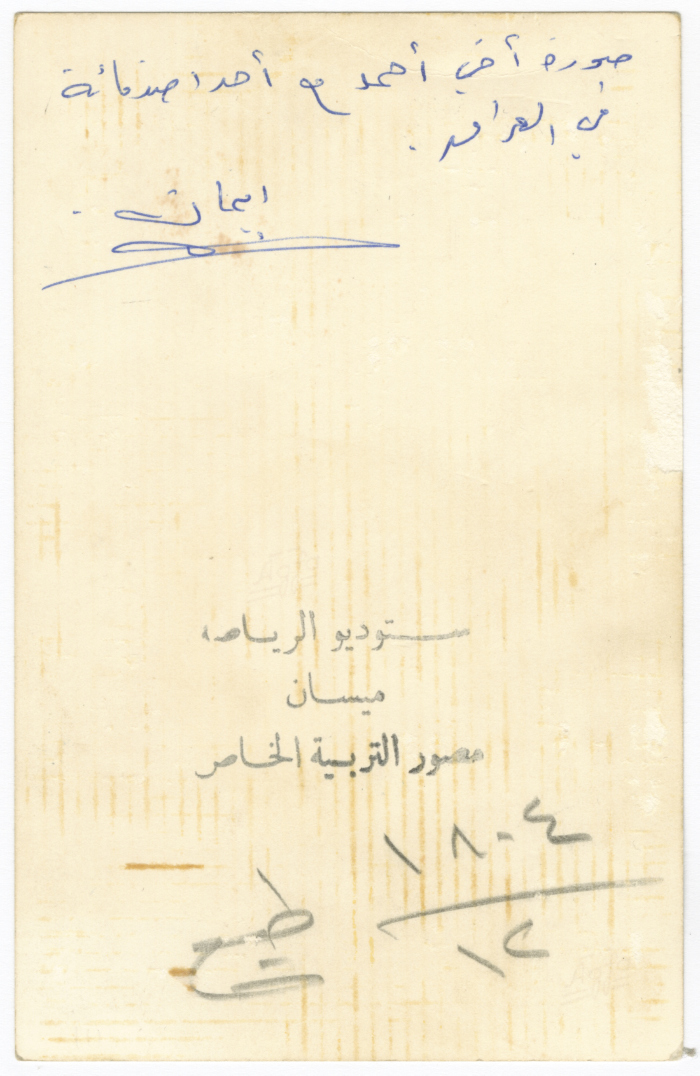 صورة أخي أحمد مع أحد اصدقائة
في العراق .
ايمان
ستوديو الرياض
ميسان
مصور التربية الخاص
١٨٠٤
١٢